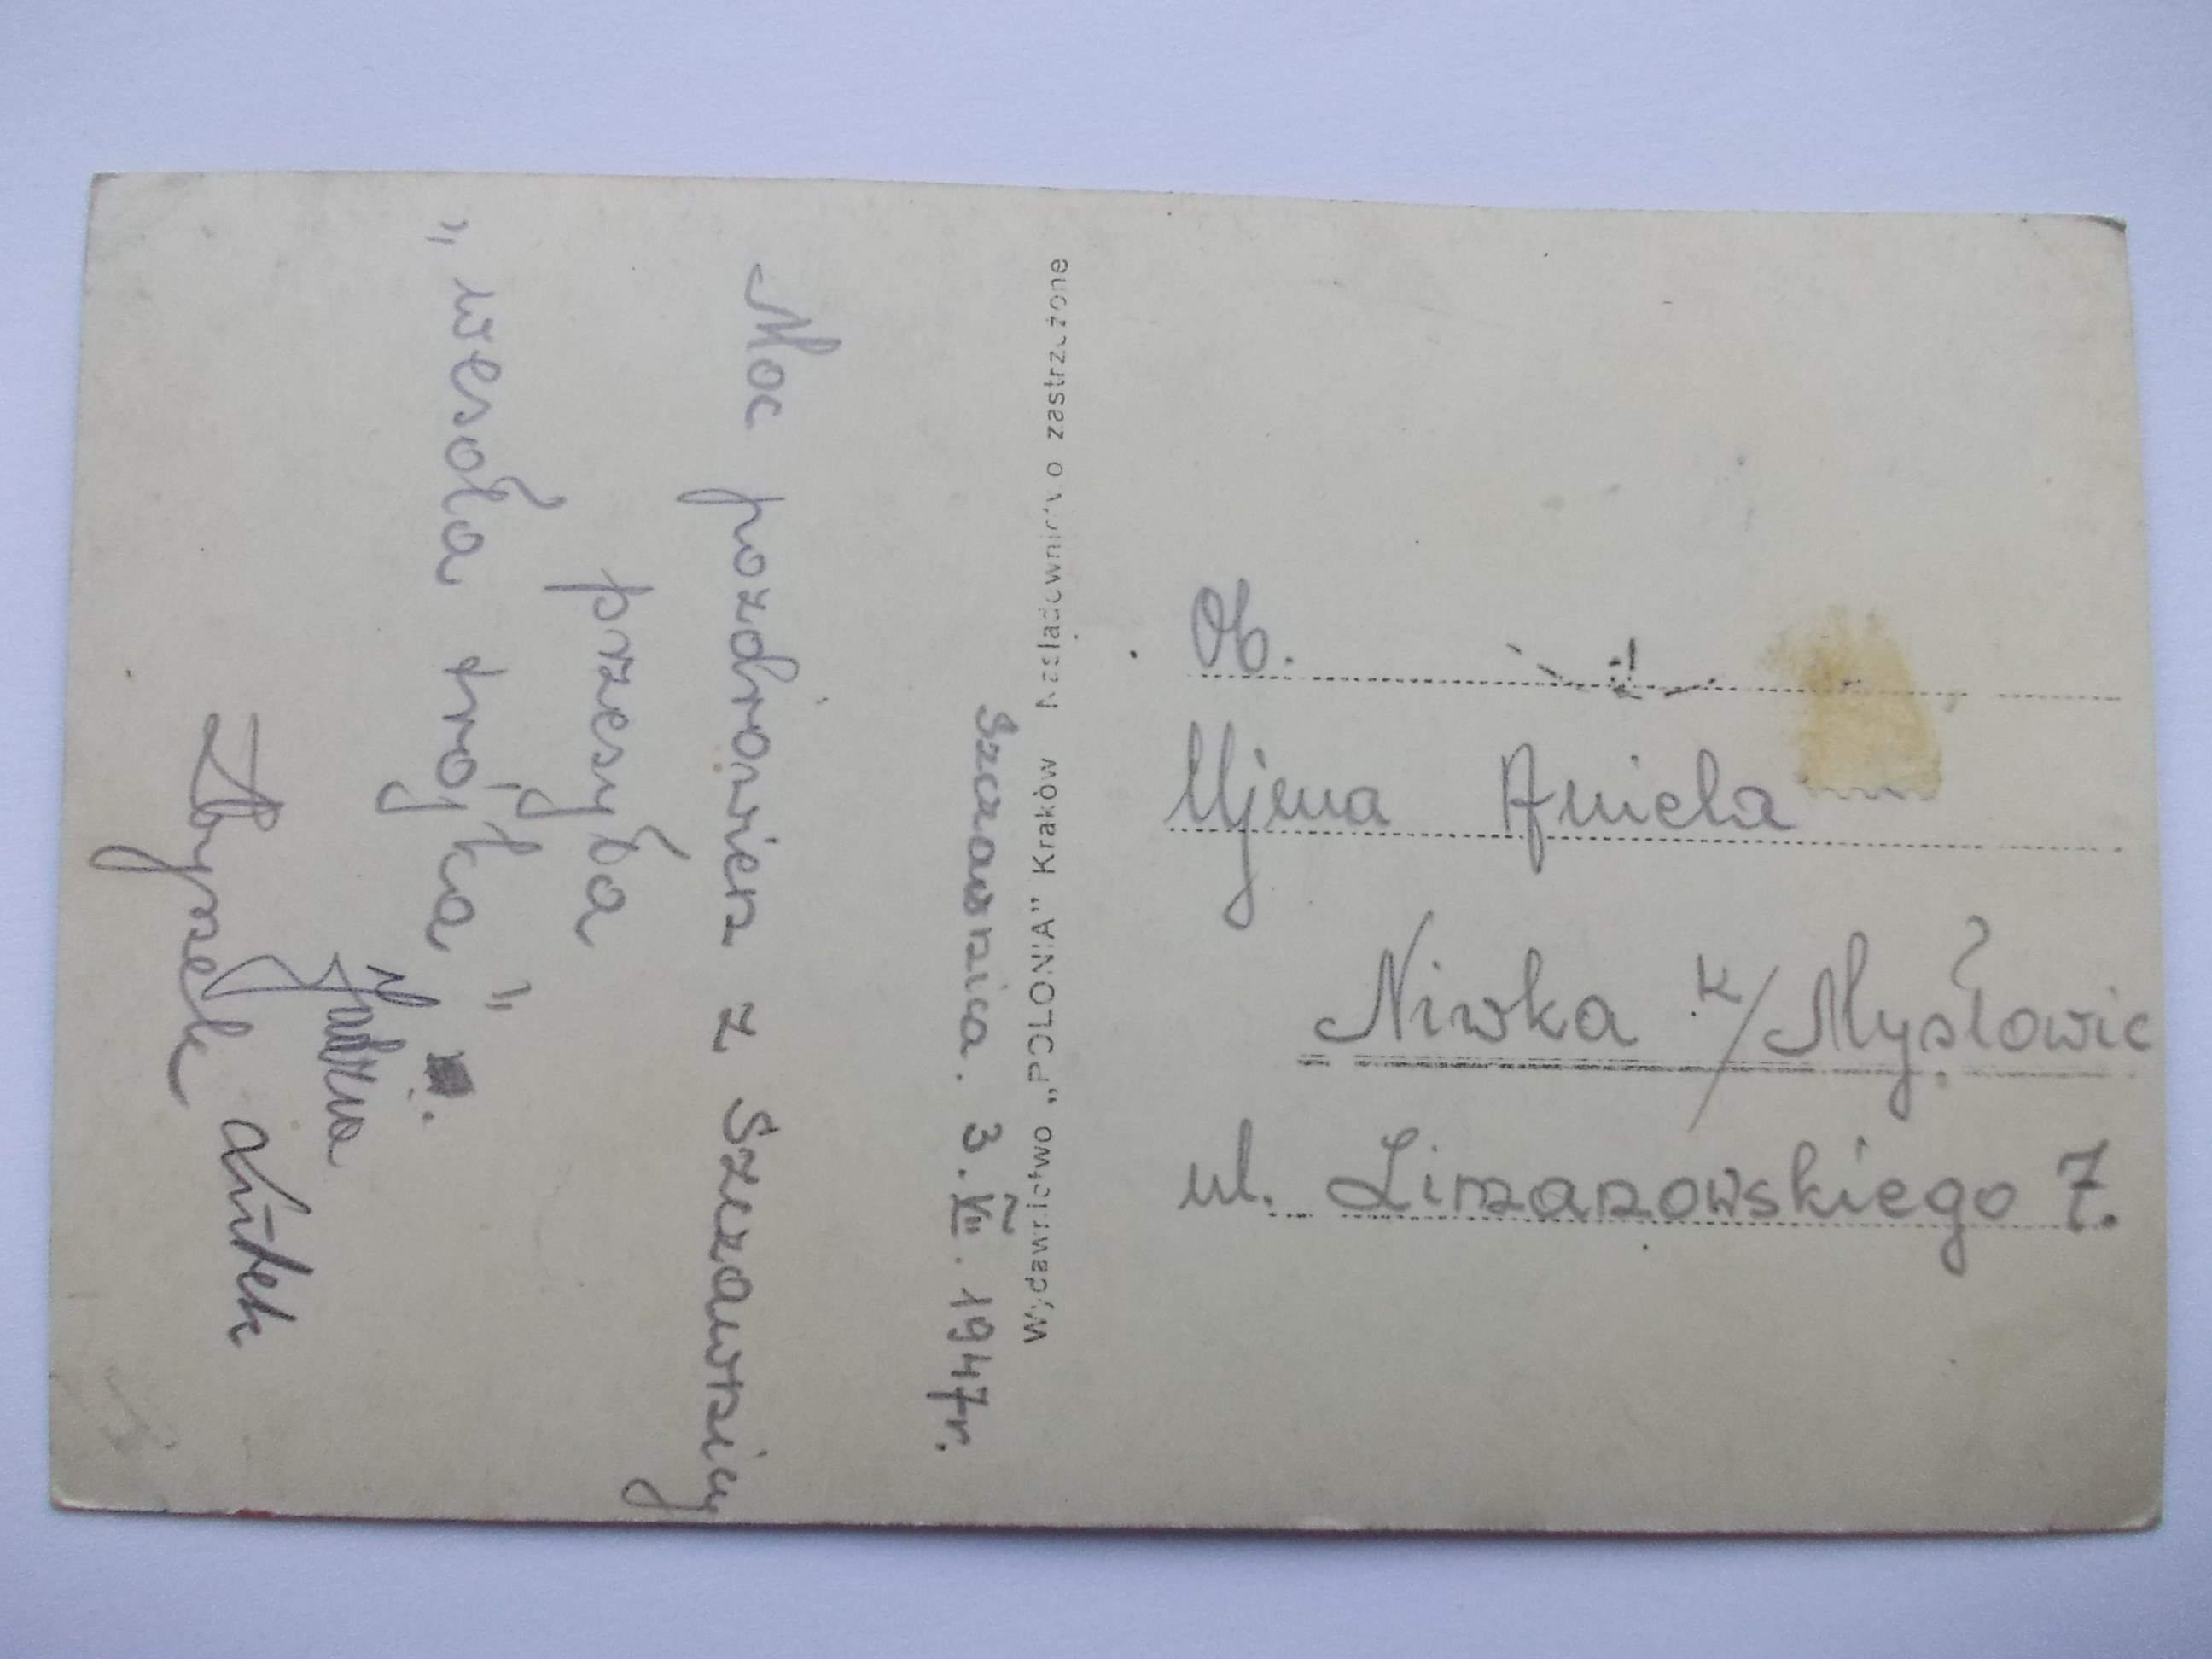 Szczawnica. 3.VIII.1947r.
Moc pozdrowień z Szczawnicy
przesyła
„wesoła trójka”
Jadzia
Zbyszek
Wydawnictwo „POLONIA” Kraków Naśladownictwo zastrzeżone
Ob.
Ujma Aniela
Niwka k/Mysłowic
ul. Limanowskiego 7.